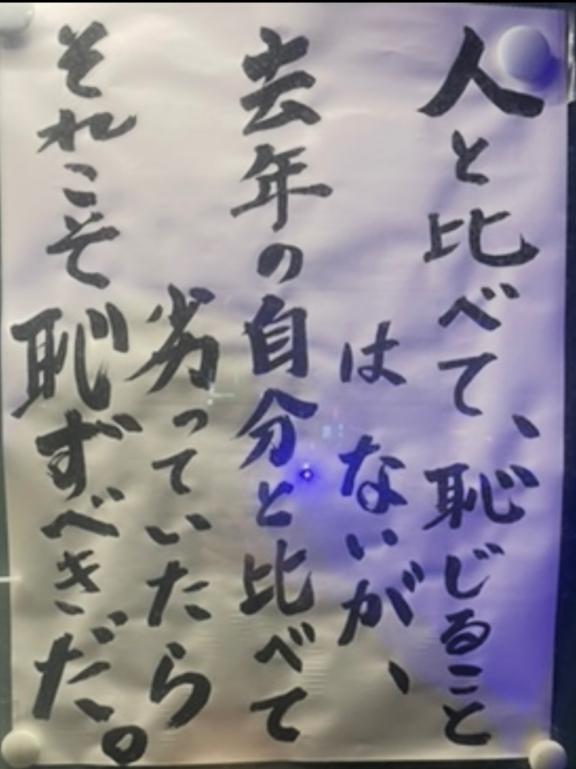 人と比べて、恥じること
はないが、
去年の自分と比べて
劣っていたら
それこそ恥ずべきだ。